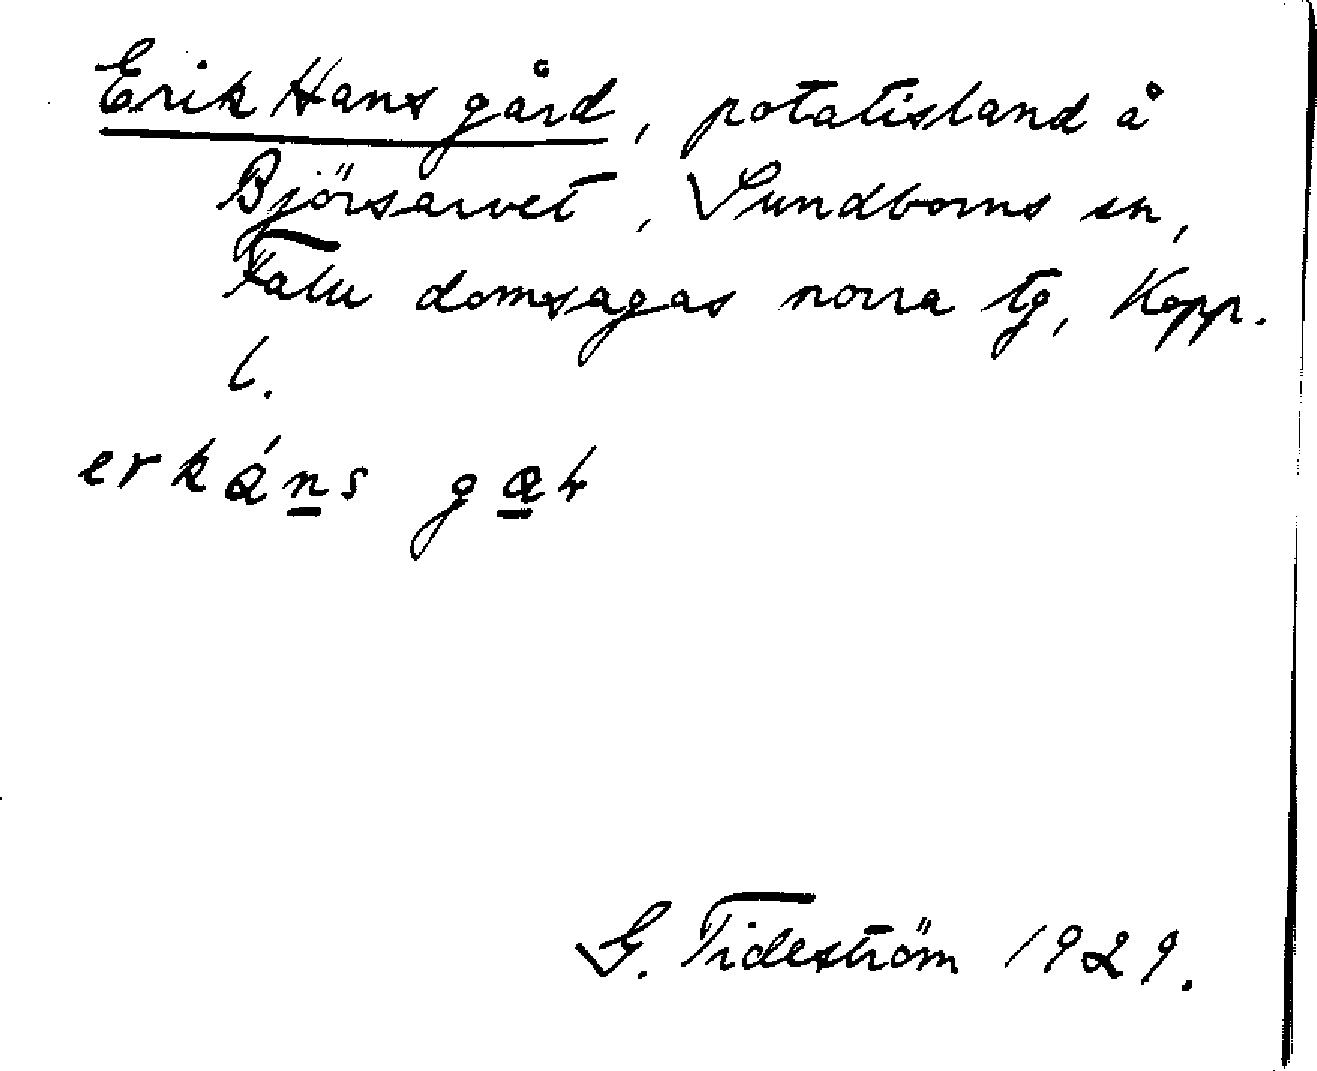 Erik Hans gård, potatisland å
Björsarvet, Sundborns sn,
Falu domsagas norra tg, Kopp.
l.
erkáns
G. Tideström 1929.